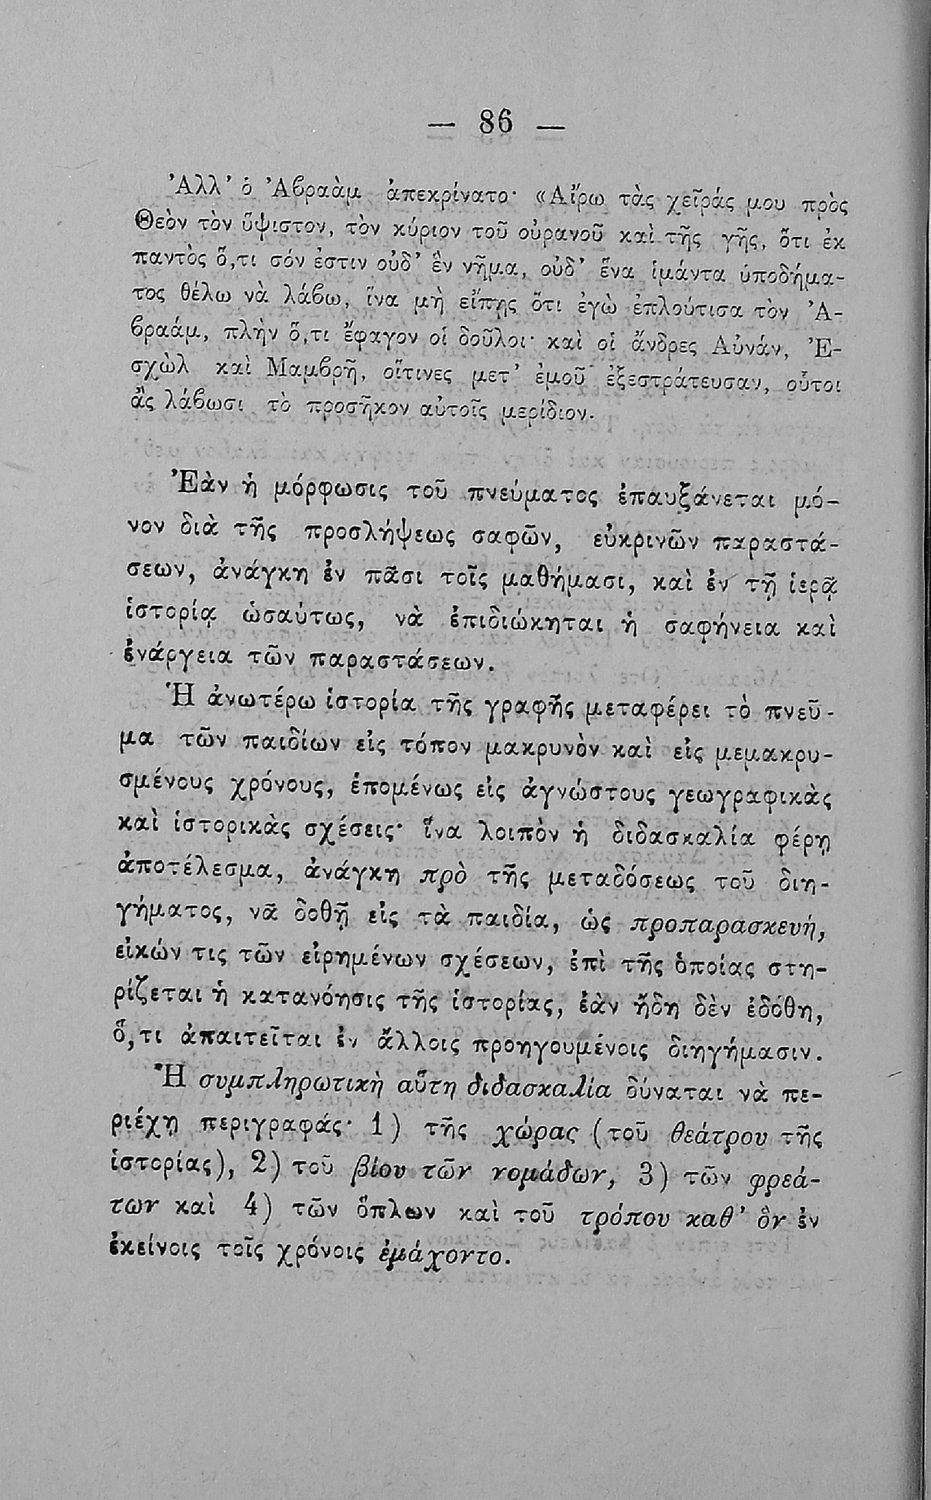 — 86 —
Ἀλλ' ὁ Ἀβραὰμ ἀπεκρίνατο· «Αἴρω τὰς χεῖράς μου πρὸς
Θεὸν τὸν ὕψιστον, τὸν κύριον τοῦ οὐρανοῦ καὶ τῆς γῆς, ὅτι ἐκ
παντὸς ὅ,τι σόν ἐστιν οὐδ' ἓν νῆμα, οὐδ' ἕνα ἱμάντα ὑποδήμα-
τος θέλω νὰ λάβω, ἵνα μὴ εἴπῃς ὅτι ἐγὼ ἐπλούτισα τὸν Ἀ-
βραάμ, πλὴν ὅ,τι ἔφαγον οἱ δοῦλοι· καὶ οἱ ἄνδρες Αὐνάν, Ἐ-
σχὼλ καὶ Μαμβρῆ, οἵτινες μετ' ἐμοῦ ἐξεστράτευσαν, οὗτοι
ἂς λάβωσι τὸ προσῆκον αὐτοῖς μερίδιον.
Ἐὰν ἡ μόρφωσις τοῦ πνεύματος ἐπαυξάνεται μό-
νον διὰ τῆς προσλήψεως σαφῶν, εὐκρινῶν παραστά-
σεων, ἀνάγκη ἐν πᾶσι τοῖς μαθήμασι, καὶ ἐν τῇ ἱερᾷ
ἱστορίᾳ ὡσαύτως, νὰ ἐπιδιώκηται ἡ σαφήνεια καὶ
ἐνάργεια τῶν παραστάσεων.
Ἡ ἀνωτέρω ἱστορία τῆς γραφῆς μεταφέρει τὸ πνεῦ-
μα τῶν παιδίων εἰς τόπον μακρυνὸν καὶ εἰς μεμακρυ-
σμένους χρόνους, ἑπομένως εἰς ἀγνώστους γεωγραφικὰς
καὶ ἱστορικὰς σχέσεις· ἵνα λοιπὸν ἡ διδασκαλία φέρῃ
ἀποτέλεσμα, ἀνάγκη πρὸ τῆς μεταδόσεως τοῦ διη-
γήματος, νὰ δοθῇ εἰς τὰ παιδία, ὡς προπαρασκευή,
εἰκών τις τῶν εἰρημένων σχέσεων, ἐπὶ τῆς ὁποίας στη-
ρίζεται ἡ κατανόησις τῆς ἱστορίας, ἐὰν ἤδη δὲν ἐδόθη,
ὅ,τι ἀπαιτεῖται ἐν ἄλλοις προηγουμένοις διηγήμασιν.
Ἡ συμπληρωτικὴ αὕτη διδασκαλία δύναται νὰ πε-
ριέχῃ περιγραφάς· 1) τῆς χώρας (τοῦ θεάτρου τῆς
ἱστορίας), 2) τοῦ βίου τῶν νομάδων, 3) τῶν φρεά-
των καὶ 4) τῶν ὅπλων καὶ τοῦ τρόπου καθ' ὃν ἐν
ἐκείνοις τοῖς χρόνοις ἐμάχοντο.